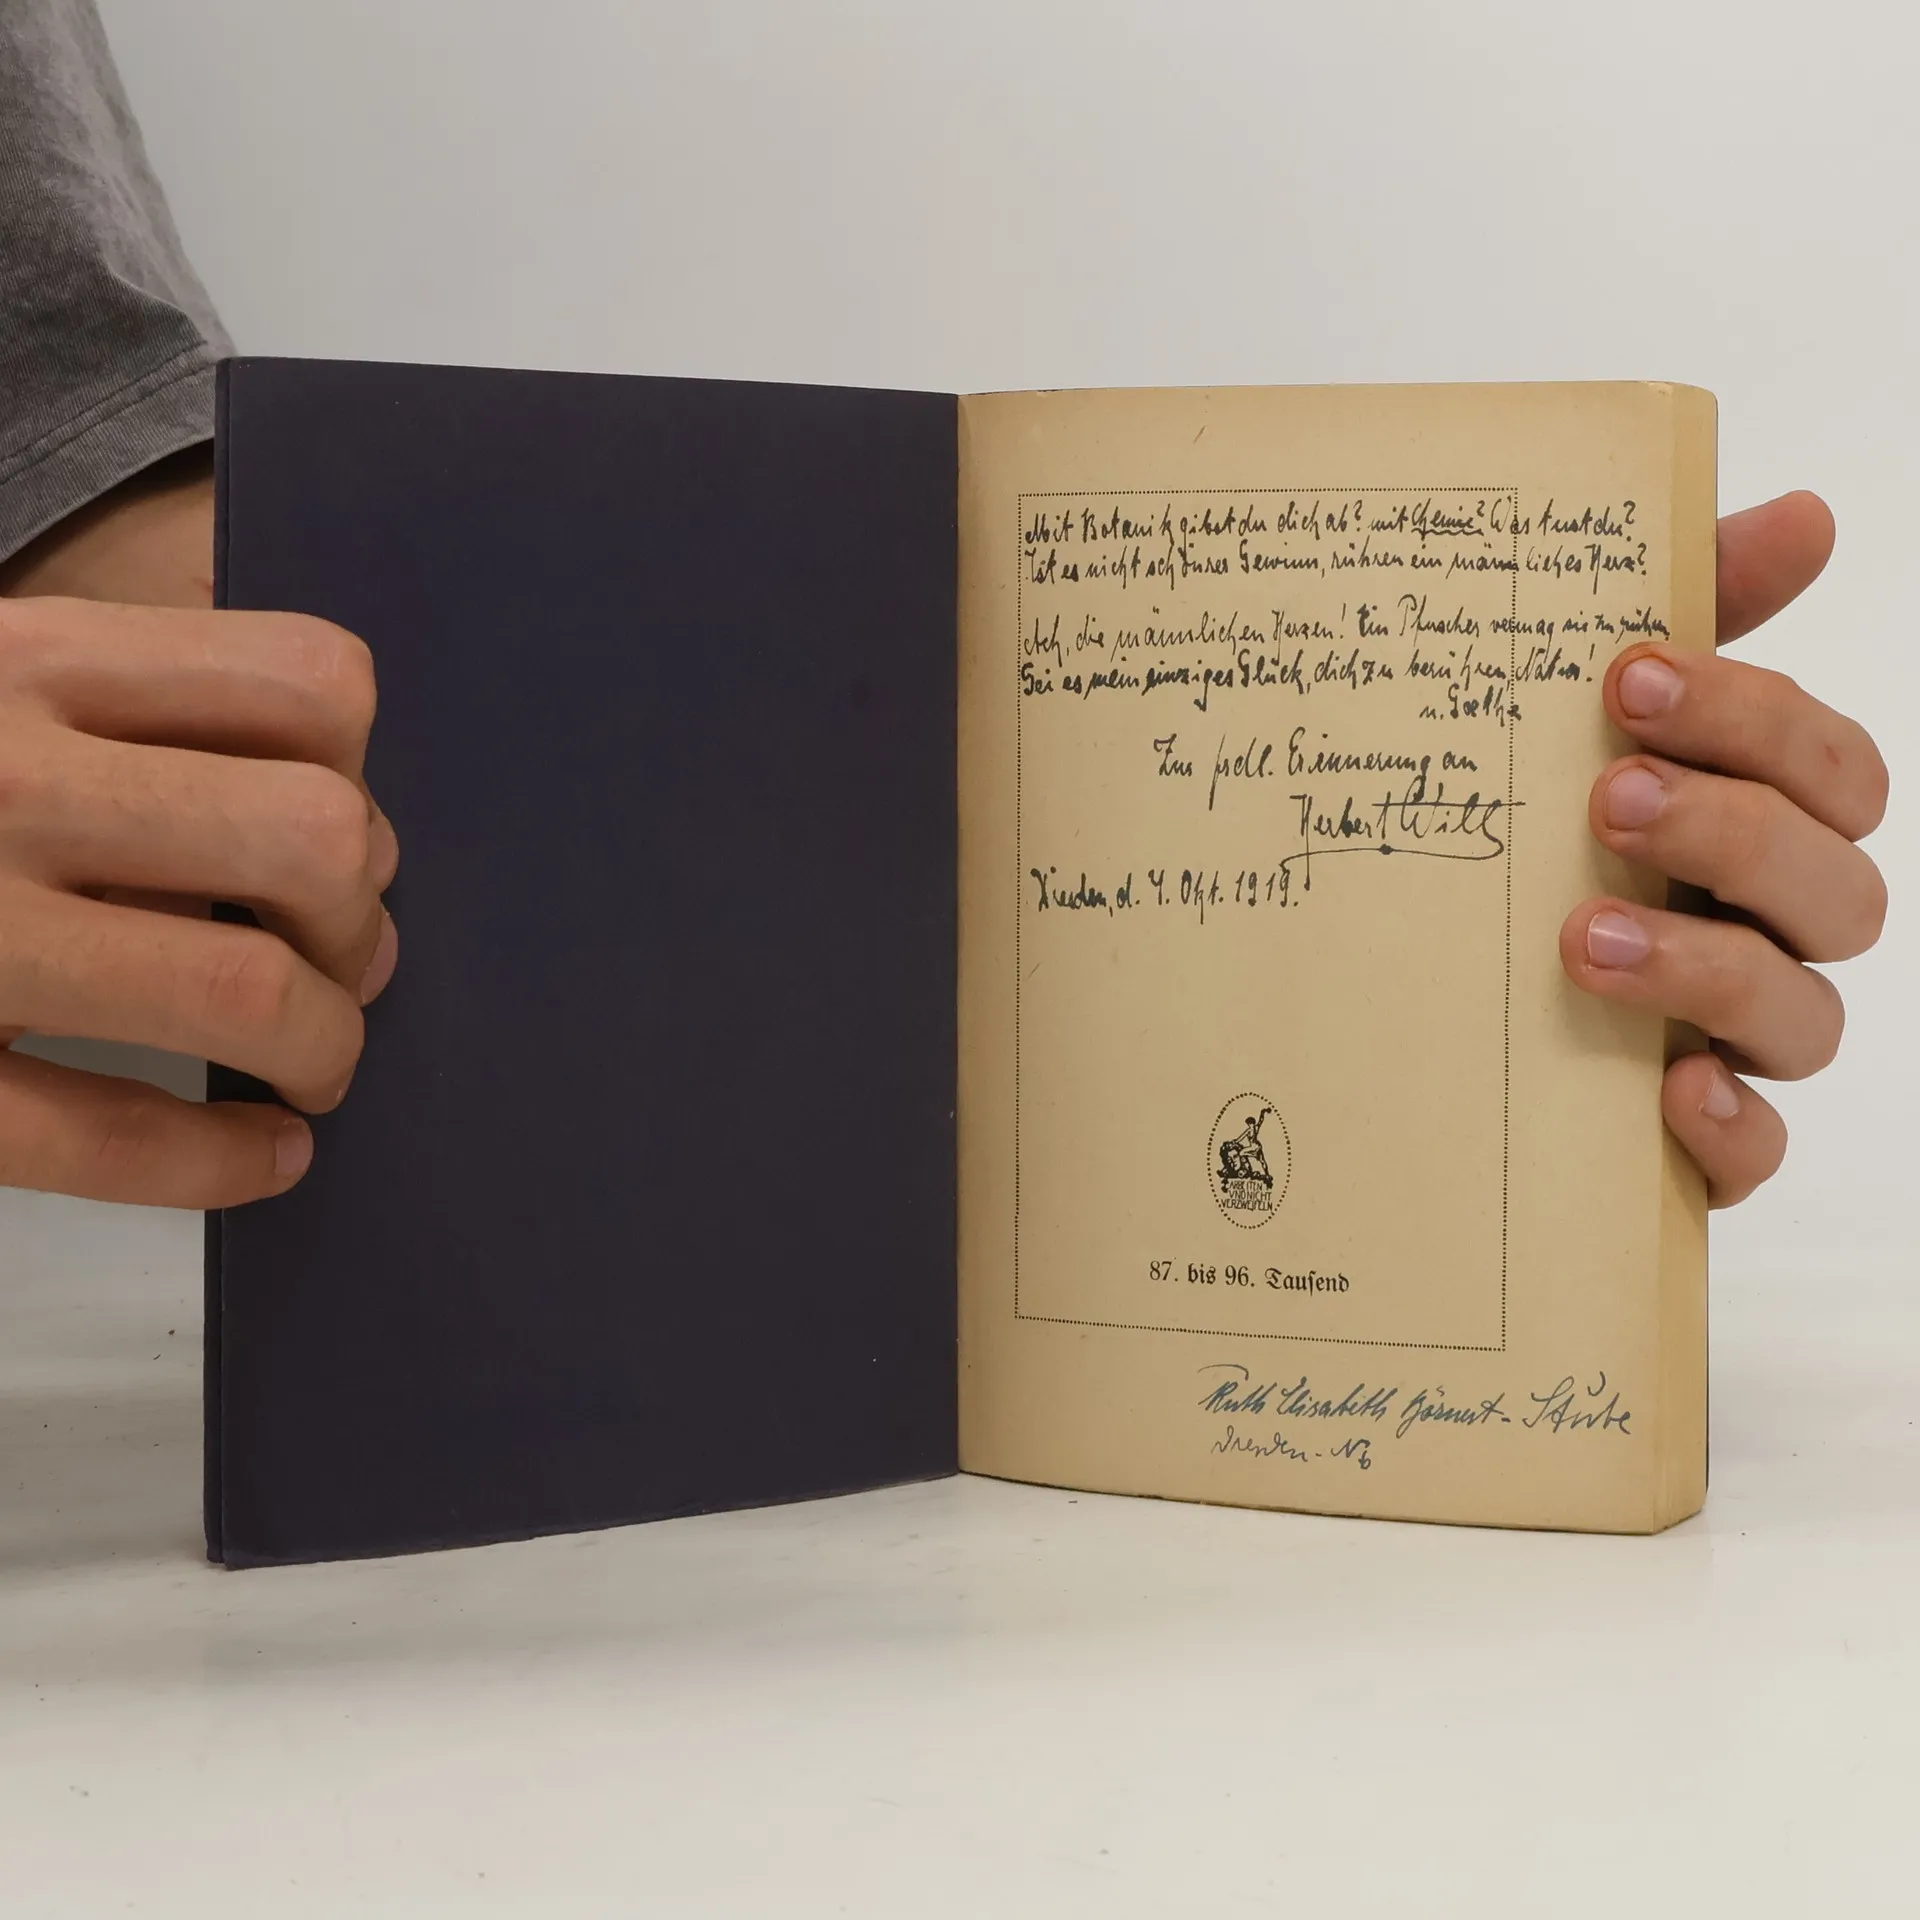 Mit Botanik gibst du dich ab? mit Chemie? Was tust du?
Ist es nicht schönrer Gewinn, rühren ein männliches Herz?
Ach, die männlichen Herzen! Ein Pfuscher vermag sie zu rühren,
Sei es mein einziges Glück, dich zu berühren, Natur!
v. Goethe
Zur frdl. Erinnerung an
Herbert Will
Dresden, d. 4. Okt. 1919.
ARBEITEN
VND NICHT
VERZWEIFELN
87. bis 96. Tausend
Ruth Elisabeth Börnert-Stube
Dresden-N6